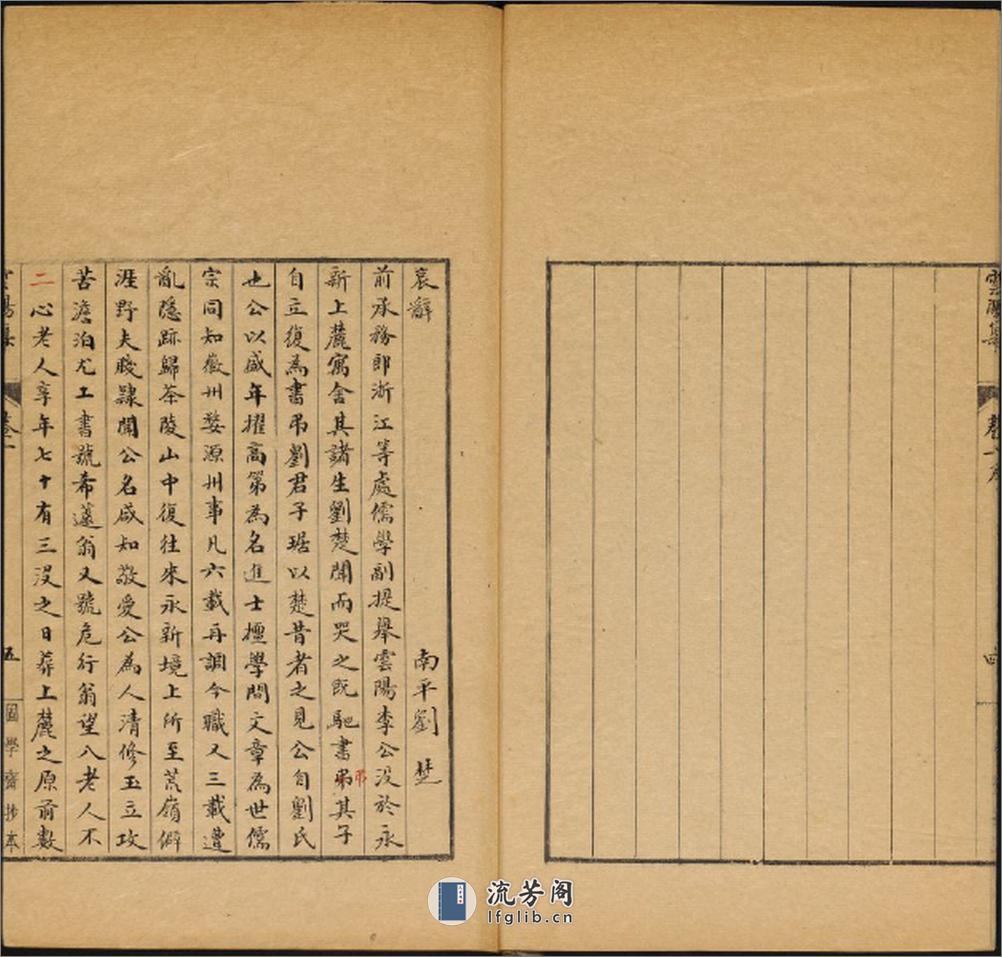 雲陽集
卷十序
四
哀辭
南平劉 楚
前承務郎浙江等處儒學副提舉雲陽李公没於永
新上麓寓舍其諸生劉楚聞而哭之既馳書弔其子
弔
自立復為書弔劉君子琚以楚昔者之見公自劉氏
也公以盛年擢高第為名進士擅學問文章為世儒
宗同知徽州婺源州事凡六載再調今職又三載遭
亂隱跡歸茶陵山中復往來永新境上所至荒嶺僻
涯野夫賤隸聞公名咸知敬愛公為人清修玉立攻
苦澹泊尤工書號希蘧翁又號危行翁望八老人不
二心老人享年七十有三没之日葬上麓之原前數
雲陽集
五
困學齋抄本
流芳阁
lfglib.cn